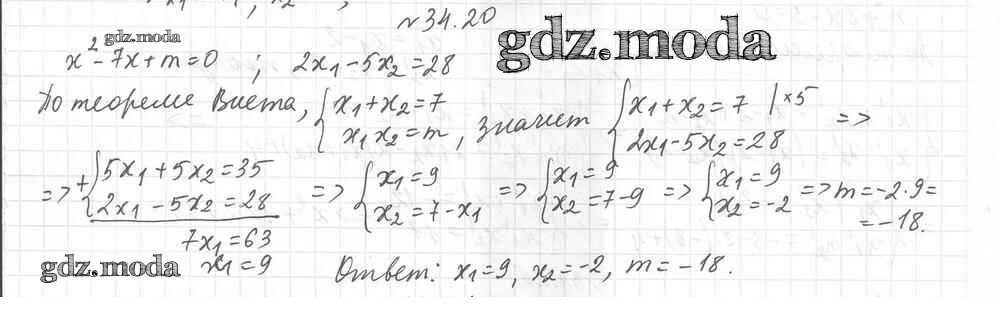 № 34.20
gdz.moda
gdz.moda
x² - 7x + m = 0 ; 2x₁ - 5x₂ = 28
По теореме Виета, { x₁ + x₂ = 7 x₁x₂ = m , значит { x₁ + x₂ = 7 |×5 2x₁ - 5x₂ = 28 =>
=> + { 5x₁ + 5x₂ = 35 2x₁ - 5x₂ = 28 => { x₁ = 9 x₂ = 7 - x₁ => { x₁ = 9 x₂ = 7 - 9 => { x₁ = 9 x₂ = -2 => m = -2 · 9 =
= -18.
7x₁ = 63
gdz.moda x₁ = 9 Ответ: x₁ = 9, x₂ = -2, m = -18.